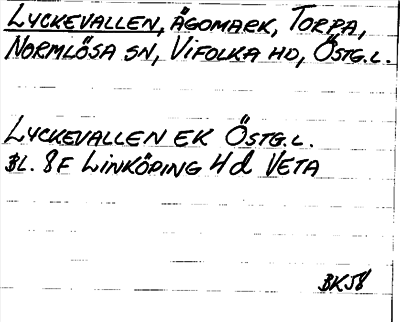 LYCKEVALLEN, ÄGOMARK, TORPA,
NORMLÖSA SN, VIFOLKA HD, ÖSTG.L.
LYCKEVALLEN EK ÖSTG.L.
BL. 8F LINKÖPING 4d VETA
BK58